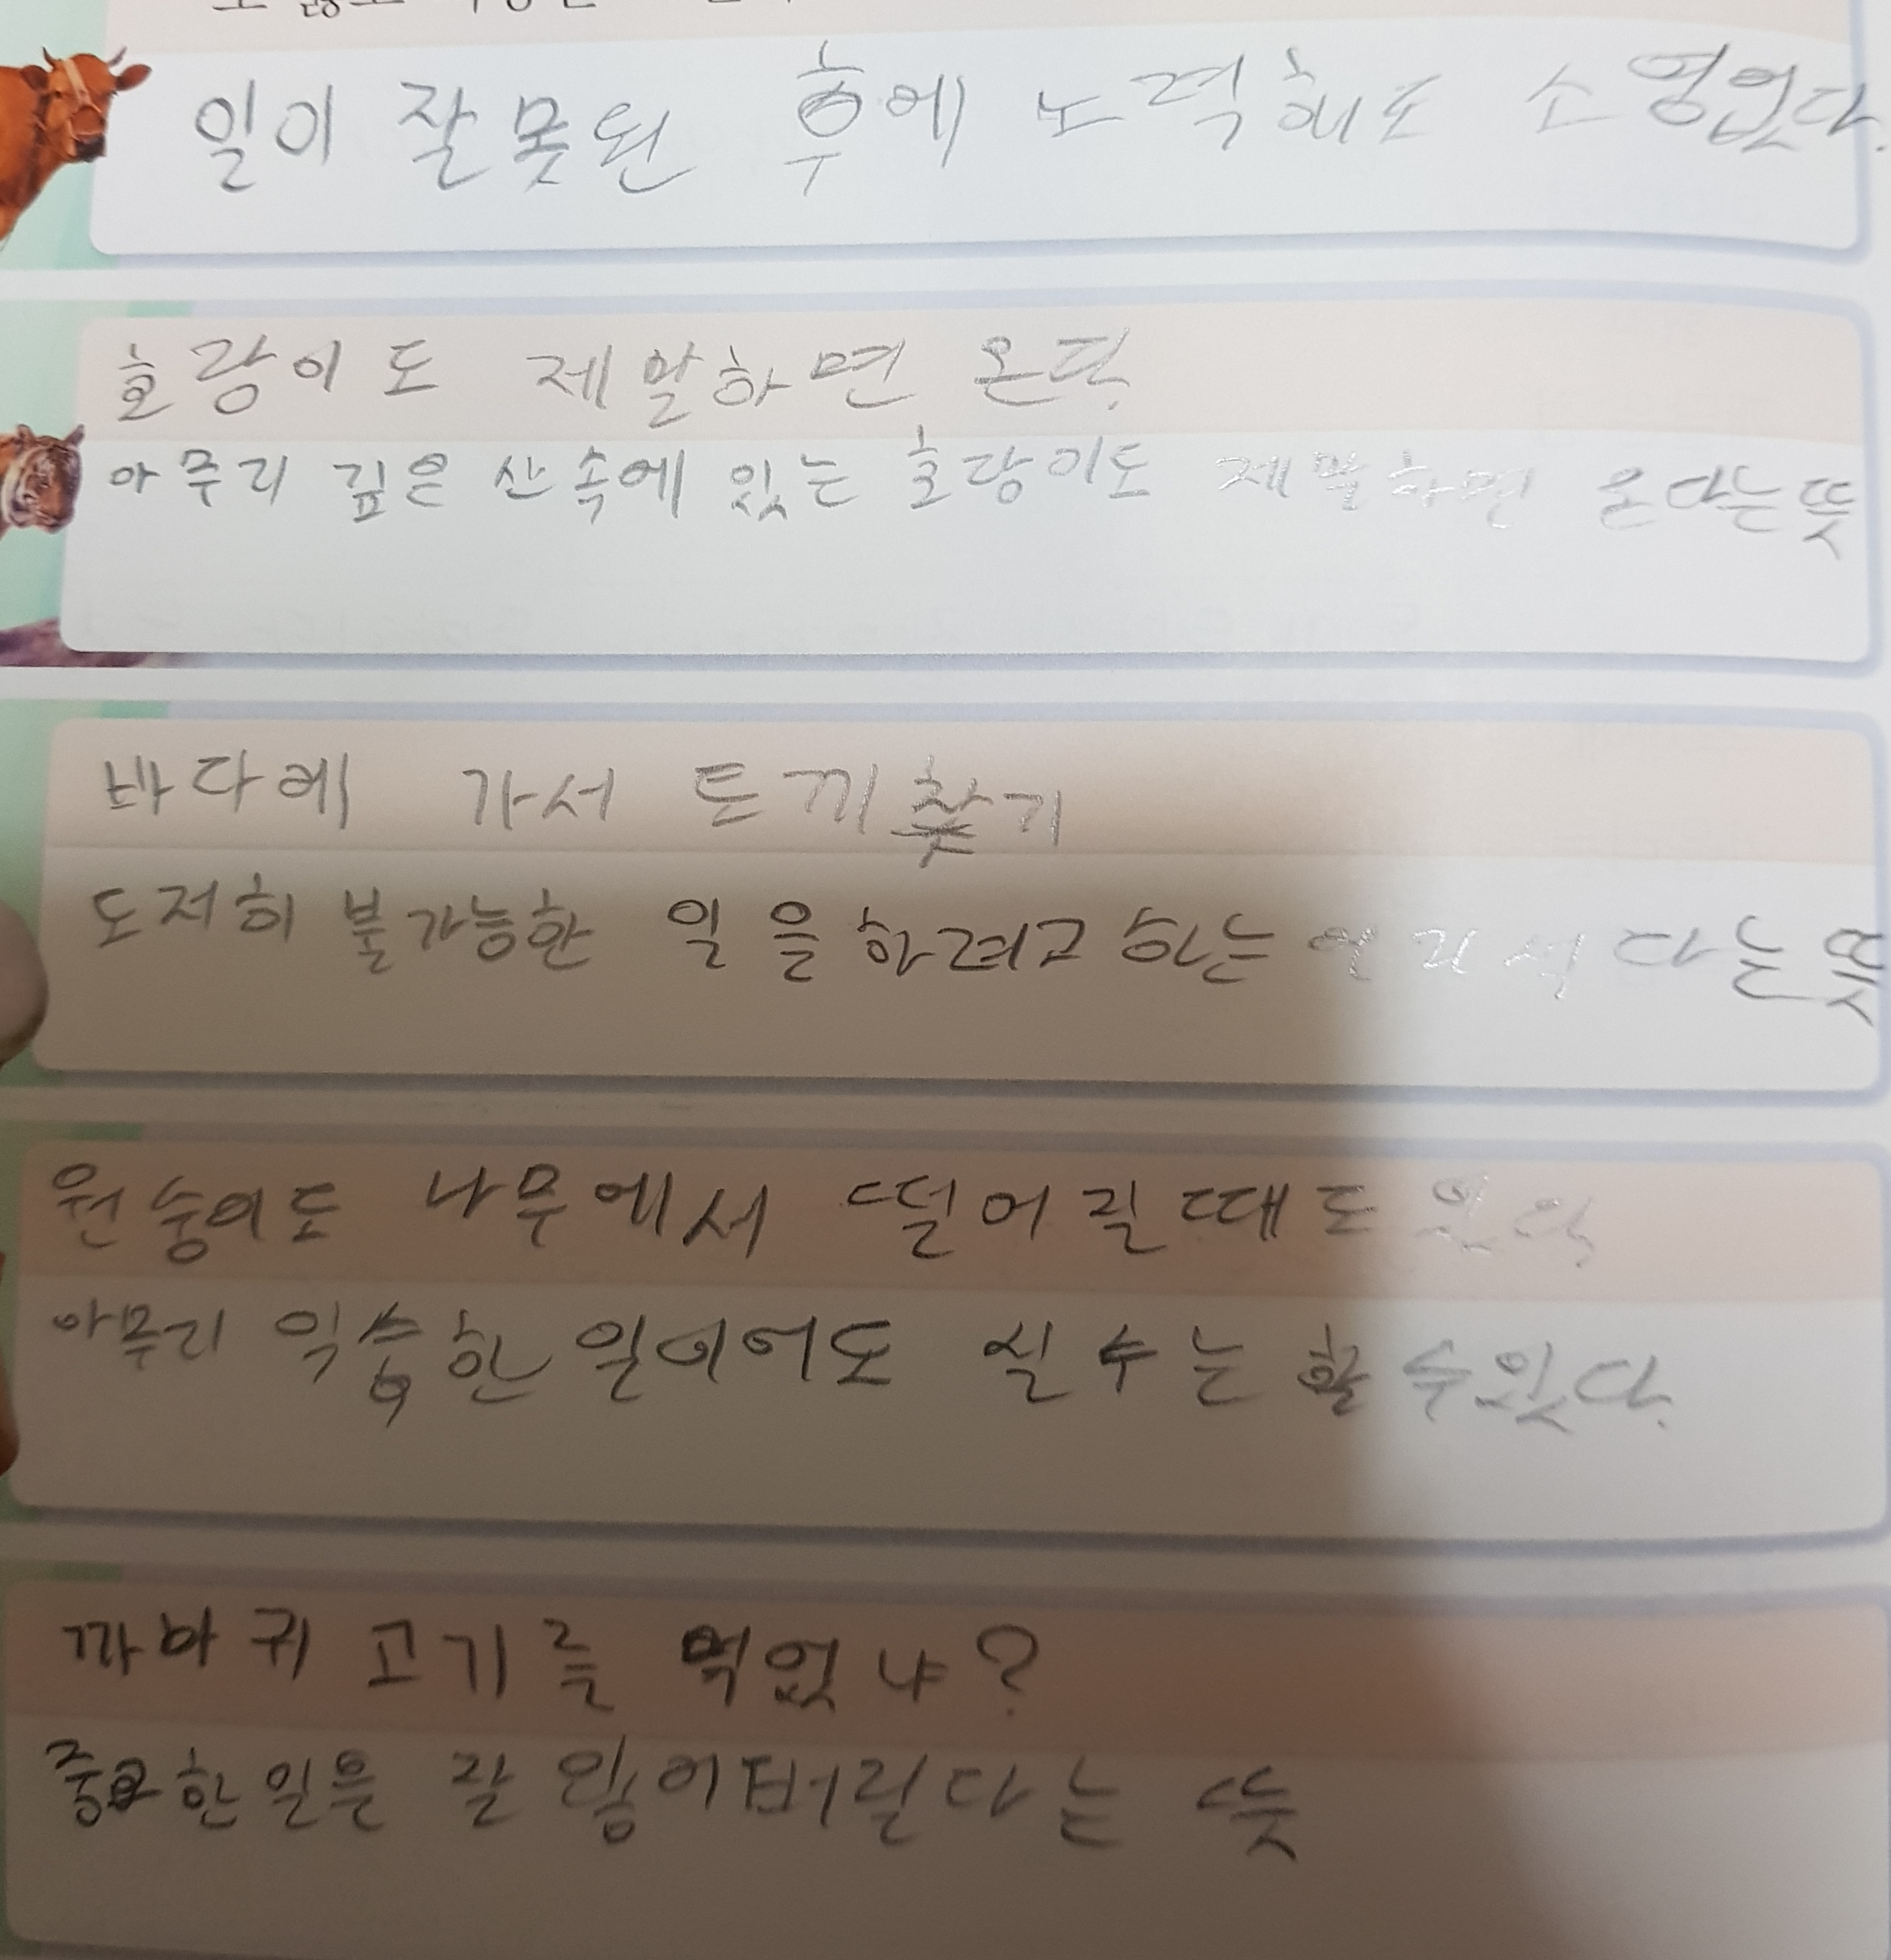 일이 잘못된 후에 노력해도 소영없다.
호랑이도 제말하면 온다.
아무리 깊은 산속에 있는 호랑이도 제말하면 온다는뜻
바다에 가서 토끼찾기
도저히 불가능한 일을하려고 하는 어리석다는뜻
원숭이도 나무에서 떨어질때도 있다
아무리 익숙한 일이어도 실수는 할수있다.
까마귀 고기를 먹었냐?
중요한일을 잘 잃어버린다는 뜻